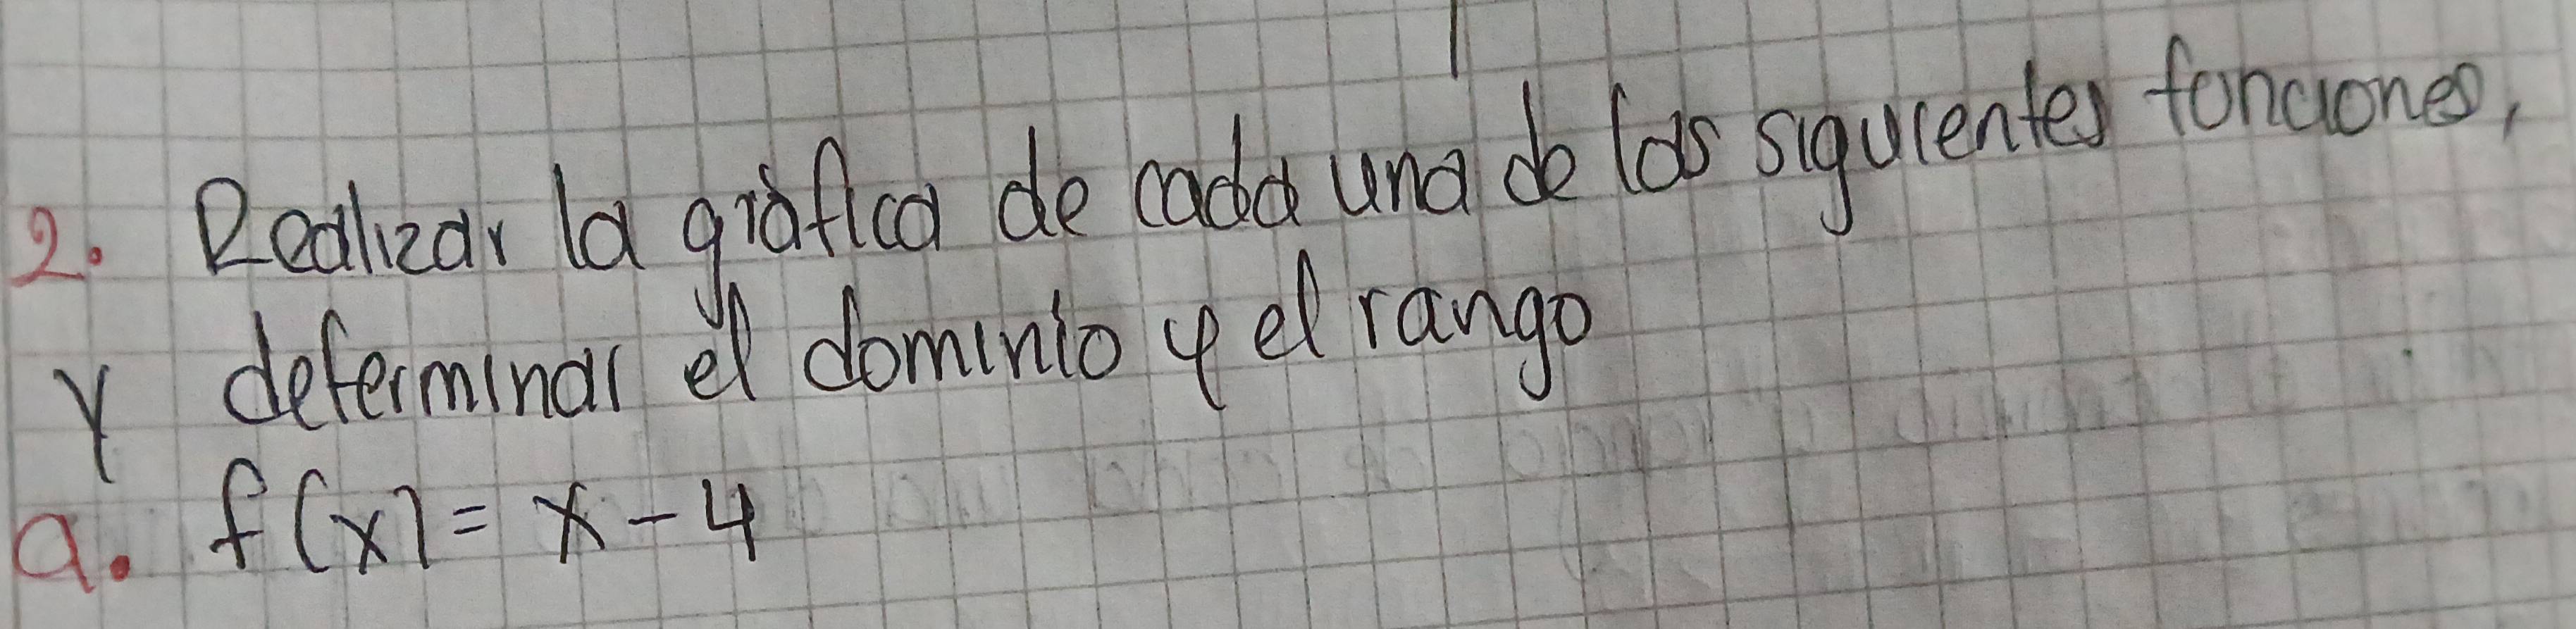 2. Realizar la gráfica de cada una de las siguientes funciones,
y determinar el dominio y el rango
a. f(x) = x - 4